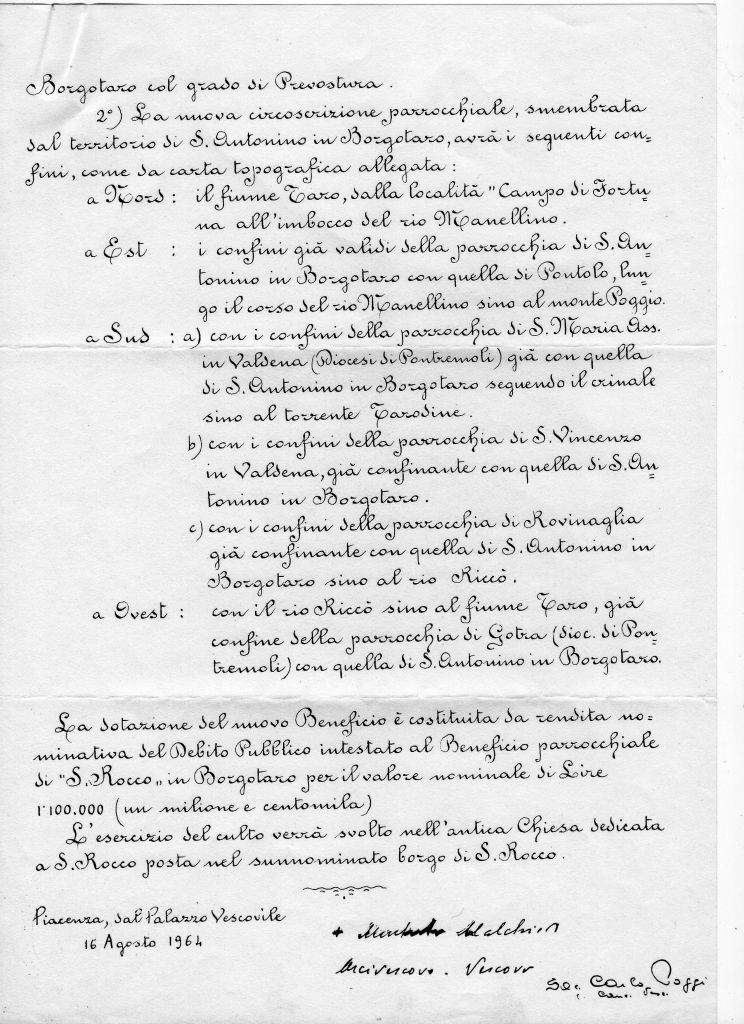 Borgotaro col grado di Prevostura.
2°) La nuova circoscrizione parrocchiale, smembrata
dal territorio di S. Antonino in Borgotaro, avrà i seguenti con=
fini, come da carta topografica allegata:
a Nord: il fiume Taro, dalla località "Campo di Fortu=
na all'imbocco del rio Manellino.
a Est : i confini già validi della parrocchia di S. An=
tonino in Borgotaro con quella di Pontolo, lun=
go il corso del rio Manellino sino al monte Poggio.
a Sud : a) con i confini della parrocchia di S. Maria Ass.
in Valdena (Diocesi di Pontremoli) già con quella
di S. Antonino in Borgotaro seguendo il crinale
sino al torrente Tarodine.
b) con i confini della parrocchia di S. Vincenzo
in Valdena, già confinante con quella di S. An=
tonino in Borgotaro.
c) con i confini della parrocchia di Rovinaglia
già confinante con quella di S. Antonino in
Borgotaro sino al rio Riccò.
a Ovest : con il rio Riccò sino al fiume Taro, già
confine della parrocchia di Gotra (dioc. di Pon=
tremoli) con quella di S. Antonino in Borgotaro.
La dotazione del nuovo Beneficio è costituita da rendita no=
minativa del Debito Pubblico intestato al Beneficio parrocchiale
di "S. Rocco„ in Borgotaro per il valore nominale di Lire
1'100.000 (un milione e centomila)
L'esercizio del culto verrà svolto nell'antica Chiesa dedicata
a S. Rocco posta nel sunnominato borgo di S. Rocco.
Piacenza, dal Palazzo Vescovile
16 Agosto 1964
+ Malchiodi
Arcivescovo. Vescovo
Sac. Carlo Poggi